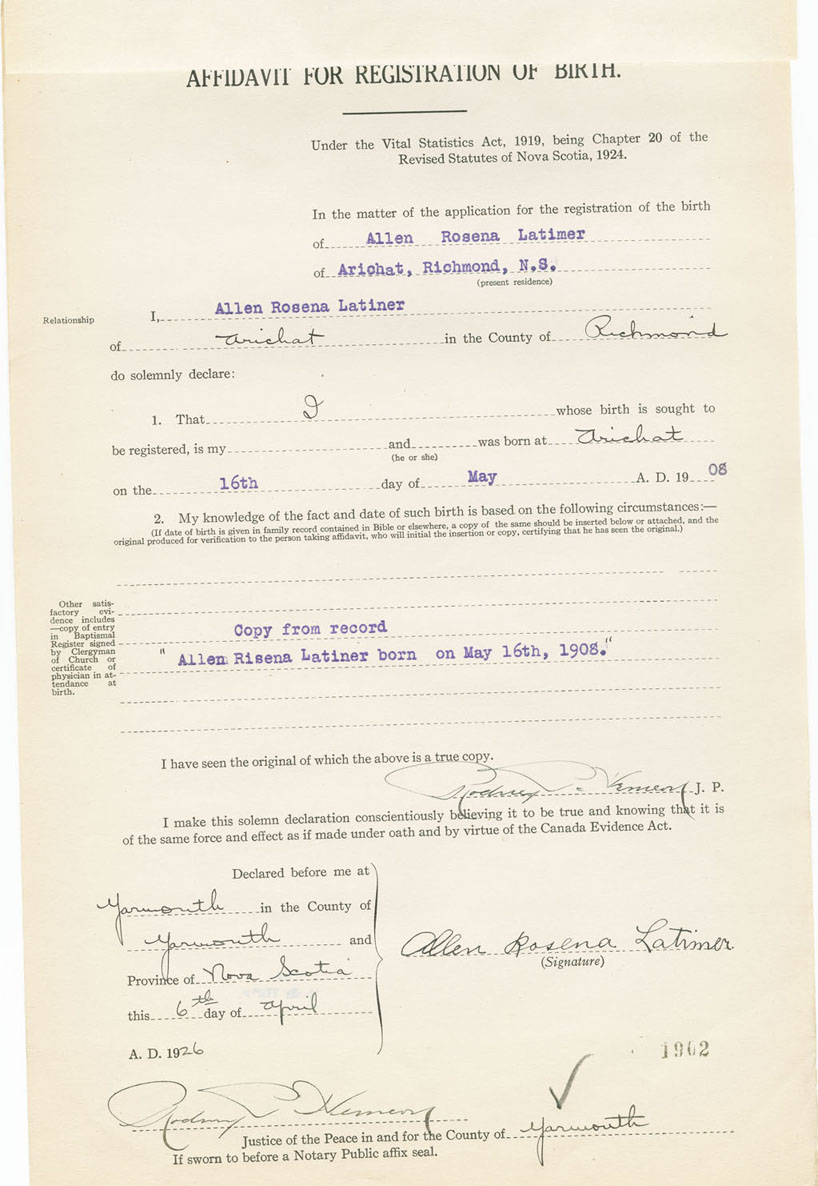 AFFIDAVIT FOR REGISTRATION OF BIRTH.
Under the Vital Statistics Act, 1919, being Chapter 20 of the
Revised Statutes of Nova Scotia, 1924.
In the matter of the application for the registration of the birth
of Allen Rosena Latimer
of Arichat, Richmond, N.S.
(present residence)
Relationship
I, Allen Rosena Latiner
of Arichat in the County of Richmond
do solemnly declare:
1. That I whose birth is sought to
be registered, is my and was born at Arichat
(he or she)
on the 16th day of May A. D. 1908
2. My knowledge of the fact and date of such birth is based on the following circumstances:—
(If date of birth is given in family record contained in Bible or elsewhere, a copy of the same should be inserted below or attached, and the
original produced for verification to the person taking affidavit, who will initial the insertion or copy, certifying that he has seen the original.)
Other satis-
factory evi-
dence includes
—copy of entry
in Baptismal
Register signed
by Clergyman
of Church or
certificate of
physician in at-
tendance at
birth.
Copy from record
" Allen Risena Latiner born on May 16th, 1908."
I have seen the original of which the above is a true copy.
Rodney J. P.
I make this solemn declaration conscientiously believing it to be true and knowing that it is
of the same force and effect as if made under oath and by virtue of the Canada Evidence Act.
Declared before me at
Yarmouth in the County of
Yarmouth and
Province of Nova Scotia
this 6th day of April
A. D. 1926
Allen Rosena Latimer.
(Signature)
1902
Rodney
Justice of the Peace in and for the County of Yarmouth
If sworn to before a Notary Public affix seal.